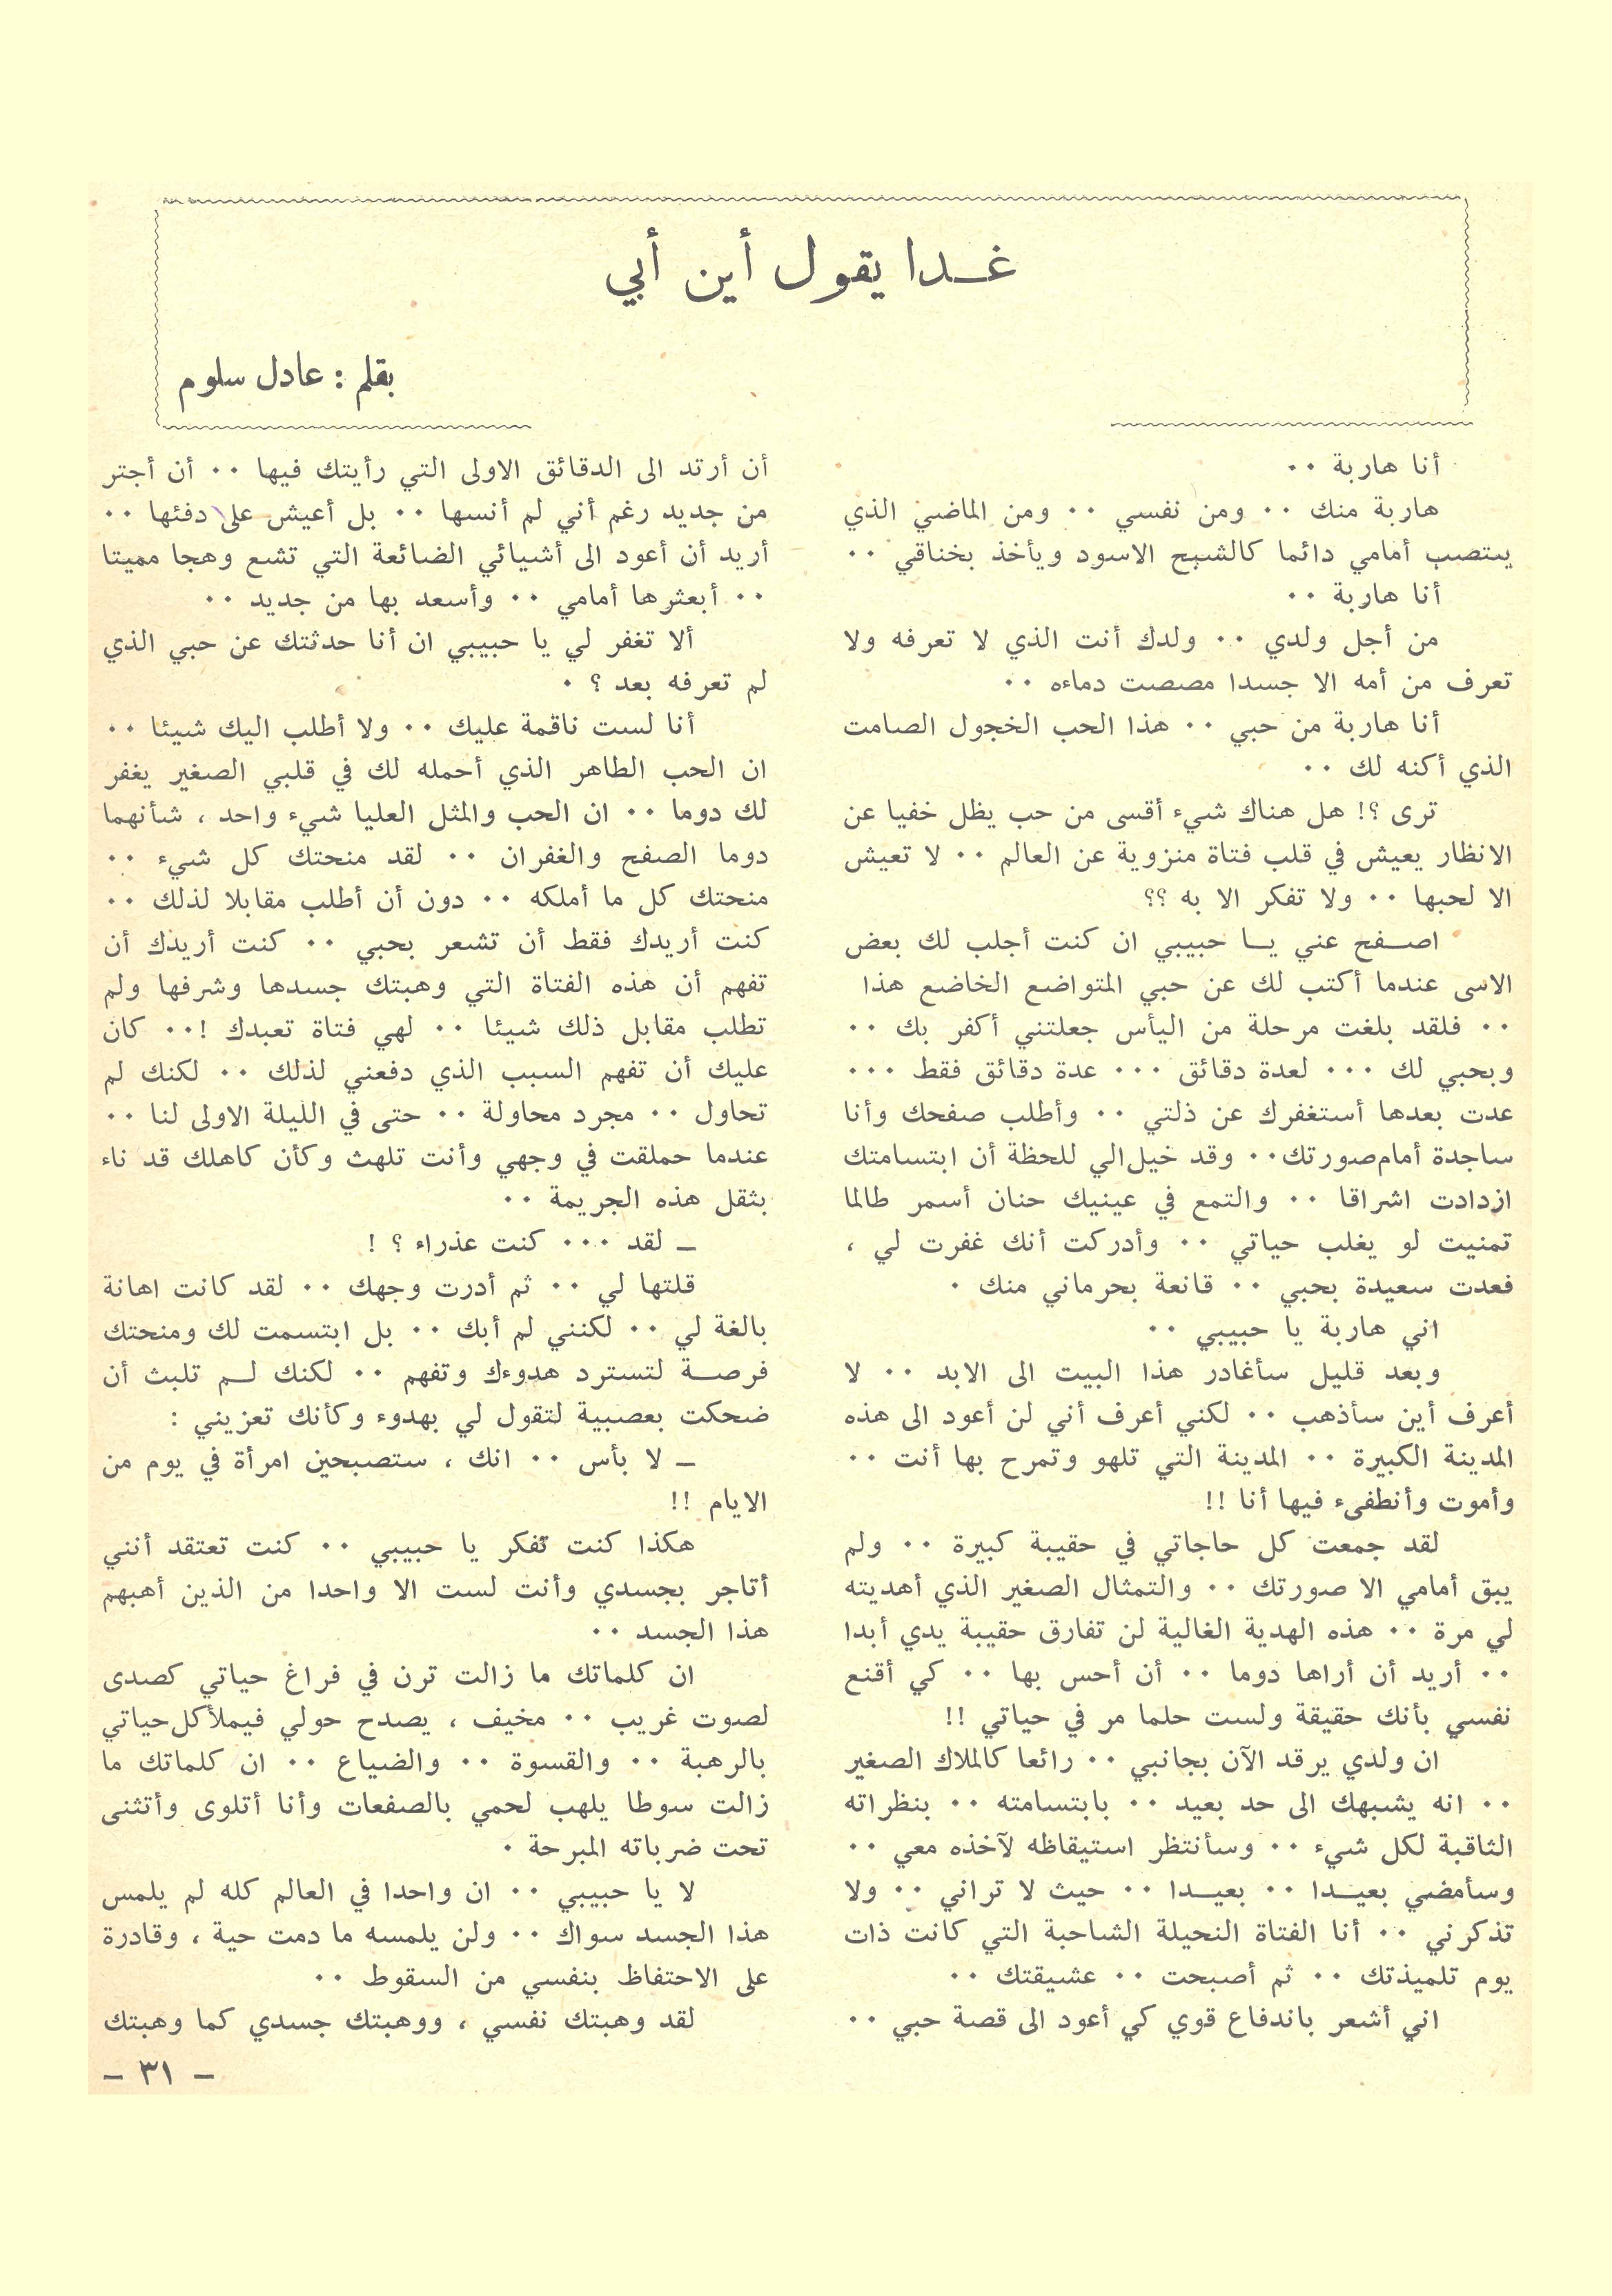 غـــدا يقول أين أبي
بقلم : عادل سلوم
أنا هاربة ٠٠
هاربة منك ٠٠ ومن نفسي ٠٠ ومن الماضي الذي
ينتصب أمامي دائما كالشبح الاسود ويأخذ بخناقي ٠٠
أنا هاربة ٠٠
من أجل ولدي ٠٠ ولدك أنت الذي لا تعرفه ولا
تعرف من أمه الا جسدا مصصت دماءه ٠٠
أنا هاربة من حبي ٠٠ هذا الحب الخجول الصامت
الذي أكنه لك ٠٠
ترى ؟! هل هناك شيء أقسى من حب يظل خفيا عن
الانظار يعيش في قلب فتاة منزوية عن العالم ٠٠ لا تعيش
الا لحبها ٠٠ ولا تفكر الا به ؟؟
اصــفح عني يــا حبيبي ان كنت أجلب لك بعض
الاسى عندما أكتب لك عن حبي المتواضع الخاضع هذا
٠٠ فلقد بلغت مرحلة من اليأس جعلتني أكفر بك ٠٠
وبحبي لك ٠٠٠ لعدة دقائق ٠٠٠ عدة دقائق فقط ٠٠٠
عدت بعدها أستغفرك عن ذلتي ٠٠ وأطلب صفحك وأنا
ساجدة أمام صورتك٠٠ وقد خيل الي للحظة أن ابتسامتك
ازدادت اشراقا ٠٠ والتمع في عينيك حنان أسمر طالما
تمنيت لو يغلب حياتي ٠٠ وأدركت أنك غفرت لي ،
فعدت سعيدة بحبي ٠٠ قانعة بحرماني منك ٠
اني هاربة يا حبيبي ٠٠
وبعد قليل سأغادر هذا البيت الى الابد ٠٠ لا
أعرف أين سأذهب ٠٠ لكني أعرف أني لن أعود الى هذه
المدينة الكبيرة ٠٠ المدينة التي تلهو وتمرح بها أنت ٠٠
وأموت وأنطفىء فيها أنا !!
لقد جمعت كل حاجاتي في حقيبة كبيرة ٠٠ ولم
يبق أمامي الا صورتك ٠٠ والتمثال الصغير الذي أهديته
لي مرة ٠٠ هذه الهدية الغالية لن تفارق حقيبة يدي أبدا
٠٠ أريد أن أراها دوما ٠٠ أن أحس بها ٠٠ كي أقنع
نفسي بأنك حقيقة ولست حلما مر في حياتي !!
ان ولدي يرقد الآن بجانبي ٠٠ رائعا كالملاك الصغير
٠٠ انه يشبهك الى حد بعيد ٠٠ بابتسامته ٠٠ بنظراته
الثاقبة لكل شيء ٠٠ وسأنتظر استيقاظه لآخذه معي ٠٠
وسأمضي بعيــدا ٠٠ بعيــدا ٠٠ حيث لا تراني ٠٠ ولا
تذكرني ٠٠ أنا الفتاة النحيلة الشاحبة التي كانت ذات
يوم تلميذتك ٠٠ ثم أصبحت ٠٠ عشيقتك ٠٠
اني أشعر باندفاع قوي كي أعود الى قصة حبي ٠٠
أن أرتد الى الدقائق الاولى التي رأيتك فيها ٠٠ أن أجتر
من جديد رغم أني لم أنسها ٠٠ بل أعيش على دفئها ٠٠
أريد أن أعود الى أشيائي الضائعة التي تشع وهجا مميتا
٠٠ أبعثرها أمامي ٠٠ وأسعد بها من جديد ٠٠
ألا تغفر لي يا حبيبي ان أنا حدثتك عن حبي الذي
لم تعرفه بعد ؟ ٠
أنا لست ناقمة عليك ٠٠ ولا أطلب اليك شيئا ٠٠
ان الحب الطاهر الذي أحمله لك في قلبي الصغير يغفر
لك دوما ٠٠ ان الحب والمثل العليا شيء واحد ، شأنهما
دوما الصفح والغفران ٠٠ لقد منحتك كل شيء ٠٠
منحتك كل ما أملكه ٠٠ دون أن أطلب مقابلا لذلك ٠٠
كنت أريدك فقط أن تشعر بحبي ٠٠ كنت أريدك أن
تفهم أن هذه الفتاة التي وهبتك جسدها وشرفها ولم
تطلب مقابل ذلك شيئا ٠٠ لهي فتاة تعبدك !٠٠ كان
عليك أن تفهم السبب الذي دفعني لذلك ٠٠ لكنك لم
تحاول ٠٠ مجرد محاولة ٠٠ حتى في الليلة الاولى لنا ٠٠
عندما حملقت في وجهي وأنت تلهث وكأن كاهلك قد ناء
بثقل هذه الجريمة ٠٠
ــ لقد ٠٠٠ كنت عذراء ؟ !
قلتها لي ٠٠ ثم أدرت وجهك ٠٠ لقد كانت اهانة
بالغة لي ٠٠ لكنني لم أبك ٠٠ بل ابتسمت لك ومنحتك
فرصــة لتسترد هدوءك وتفهم ٠٠ لكنك لــم تلبث أن
ضحكت بعصبية لتقول لي بهدوء وكأنك تعزيني :
ــ لا بأس ٠٠ انك ، ستصبحين امرأة في يوم من
الايام !!
هكذا كنت تفكر يا حبيبي ٠٠ كنت تعتقد أنني
أتاجر بجسدي وأنت لست الا واحدا من الذين أهبهم
هذا الجسد ٠٠
ان كلماتك ما زالت ترن في فراغ حياتي كصدى
لصوت غريب ٠٠ مخيف ، يصدح حولي فيملأ كل حياتي
بالرهبة ٠٠ والقسوة ٠٠ والضياع ٠٠ ان كلماتك ما
زالت سوطا يلهب لحمي بالصفعات وأنا أتلوى وأتثنى
تحت ضرباته المبرحة ٠
لا يا حبيبي ٠٠ ان واحدا في العالم كله لم يلمس
هذا الجسد سواك ٠٠ ولن يلمسه ما دمت حية ، وقادرة
على الاحتفاظ بنفسي من السقوط ٠٠
لقد وهبتك نفسي ، ووهبتك جسدي كما وهبتك
ــ ٣١ ــ